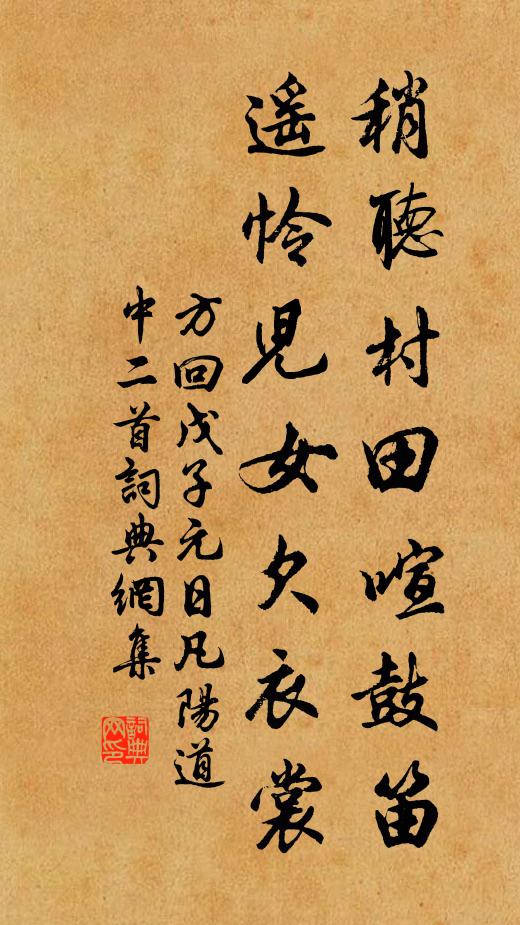 稍聽村田喧鼓笛
遥憐兒女欠衣裳
方回戊子元日凡陽道
中二首詞典網集
詞典网印